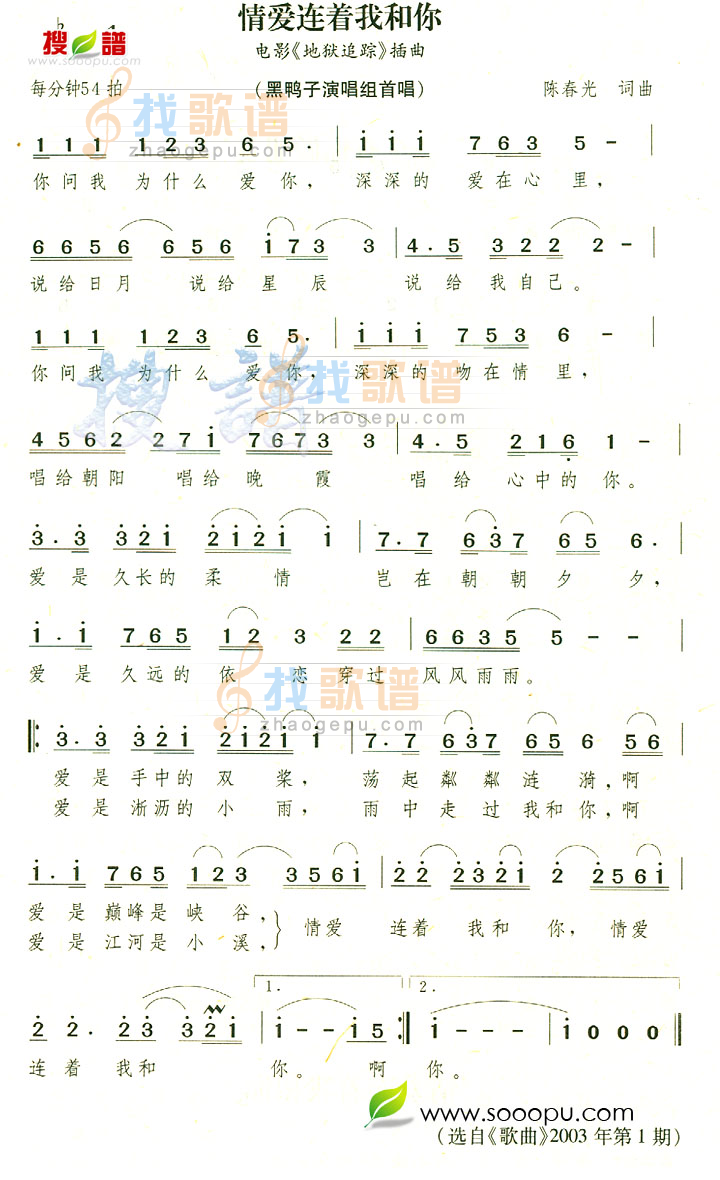 情爱连着我和你
搜谱
电影《地狱追踪》插曲
每分钟54 拍
(黑鸭子演唱组首唱)
陈春光 词曲
找歌谱
zhaogepu.com
1 1 1 1 2 3 6 5. | i i i 7 6 3 5 - |
你问我 为什么 爱你, 深深的 爱在心里,
6 6 5 6 6 5 6 i 7 3 3 | 4. 5 3 2 2 2 - |
说给日月 说给星辰 说给我自己。
1 1 1 1 2 3 6 5. | i i i 7 5 3 6 - |
你问我 为什么 爱你, 深深的 吻在情里,
搜谱 找歌谱
zhaogepu.com
4 5 6 2 2 7 i 7 6 7 3 3 | 4. 5 2 1 6 1 - |
唱给朝阳 唱给晚霞 唱给 心中的你。
3. 3 3 2 1 2 i 2 i i | 7. 7 6 3 7 6 5 6. |
爱是久长的柔情 岂在朝朝夕夕,
i. i 7 6 5 1 2 3 2 2 | 6 6 3 5 5 - - |
爱是久远的依恋穿过 风风雨雨。
找歌谱
zhaogepu.com
‖: 3. 3 3 2 1 2 i 2 i i | 7. 7 6 3 7 6 5 6 5 6 |
爱是手中的双桨, 荡起粼粼涟漪,啊
爱是淅沥的小雨, 雨中走过我和你,啊
i. i 7 6 5 1 2 3 3 5 6 i | 2 2 2 3 2 i 2 2 5 6 i |
爱是巅峰是峡谷,
情爱 连着 我和你, 情爱
爱是江河是小溪,
1. 2.
2 2. 2 3 3 2 i | i - - i 5 :‖ i - - - | i 0 0 0 ‖
连着 我和 你。 啊 你。
www.sooopu.com
(选自《歌曲》2003 年第 1 期)